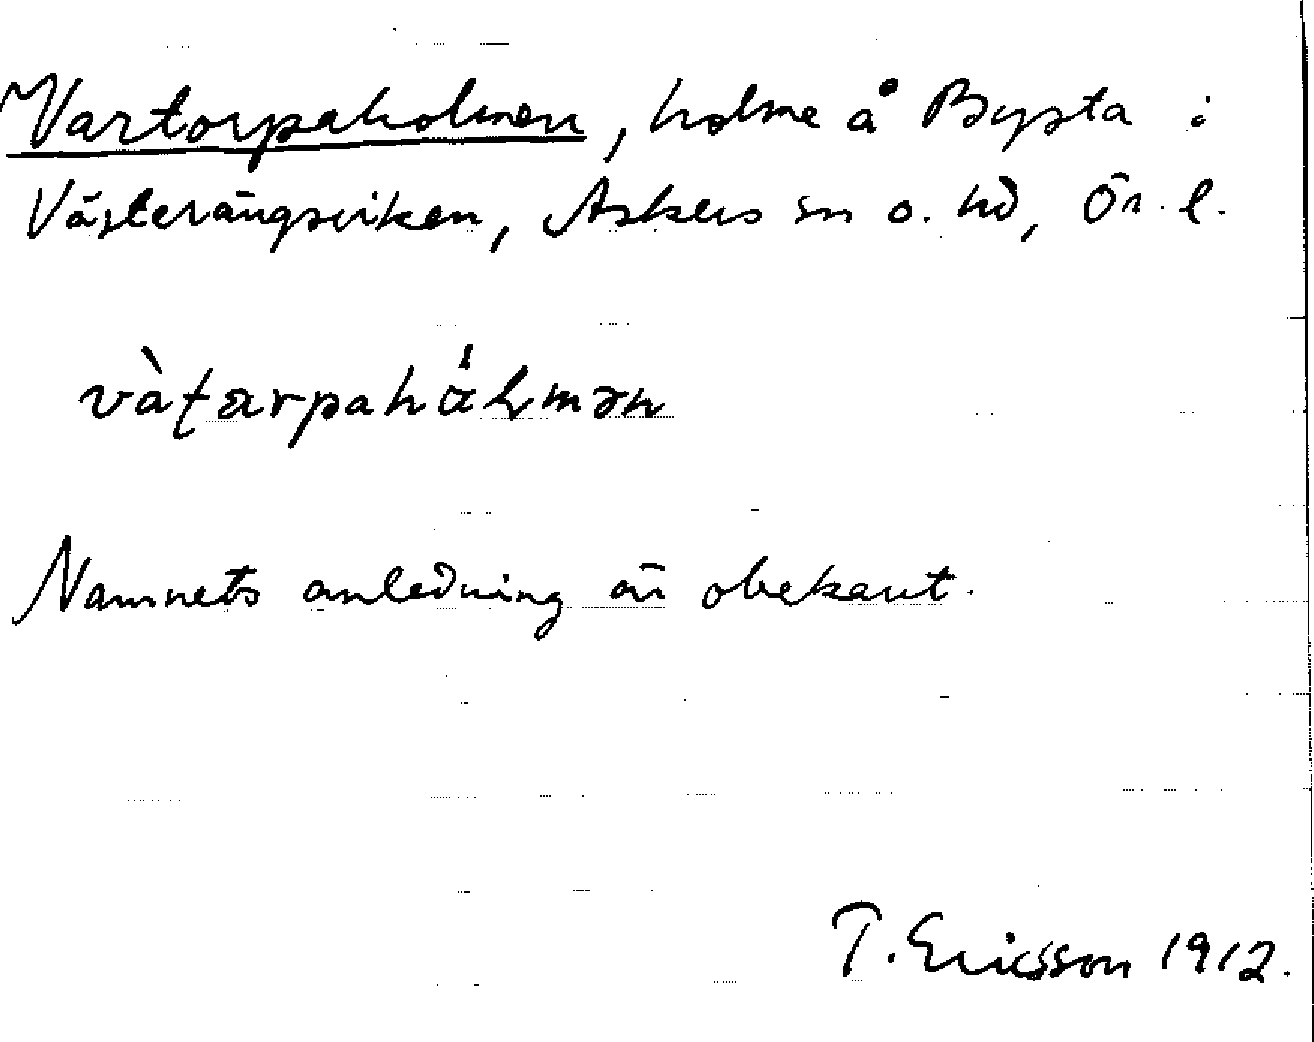 Vartorpaholmen, holme å Bysta i
Västerängsviken, Askers sn o. hd, Ör. l.
vàʈarpahålmən
Namnets anledning är obekant.
T. Ericsson 1912.